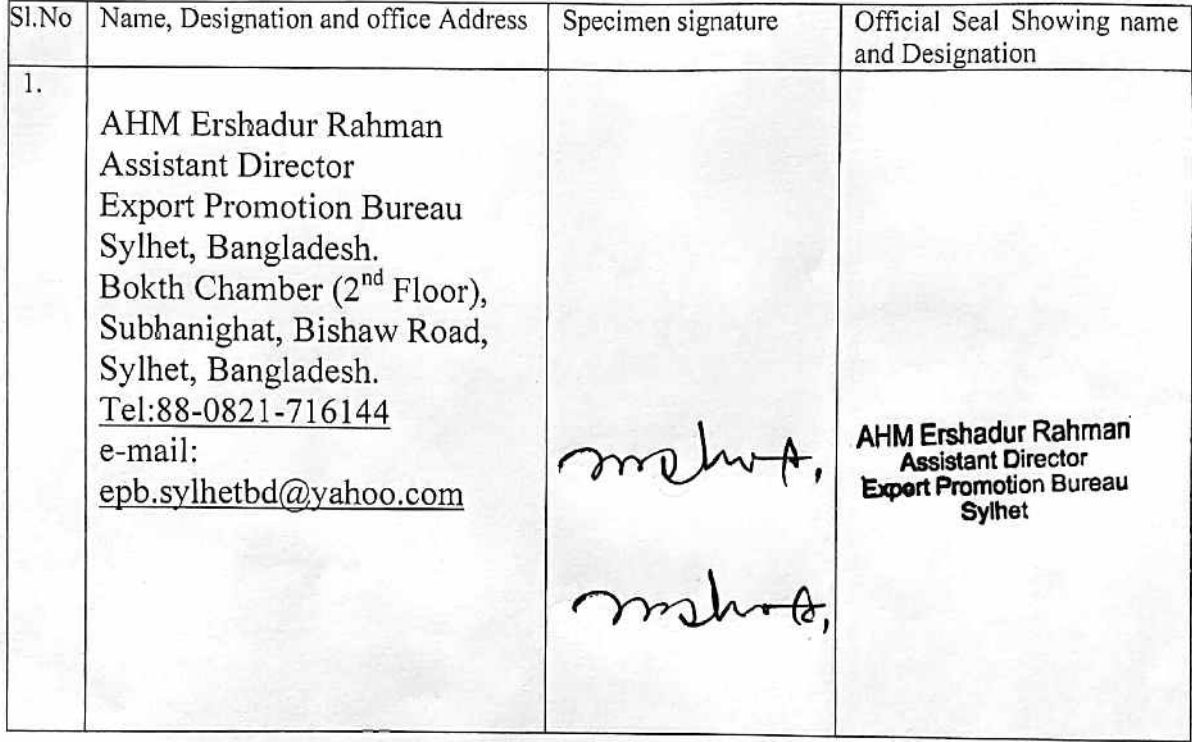 Sl.No Name, Designation and office Address Specimen signature Official Seal Showing name
and Designation
1.
AHM Ershadur Rahman
Assistant Director
Export Promotion Bureau
Sylhet, Bangladesh.
Bokth Chamber (2nd Floor),
Subhanighat, Bishaw Road,
Sylhet, Bangladesh.
Tel:88-0821-716144
e-mail:
epb.sylhetbd@yahoo.com
AHM Ershadur Rahman
Assistant Director
Export Promotion Bureau
Sylhet